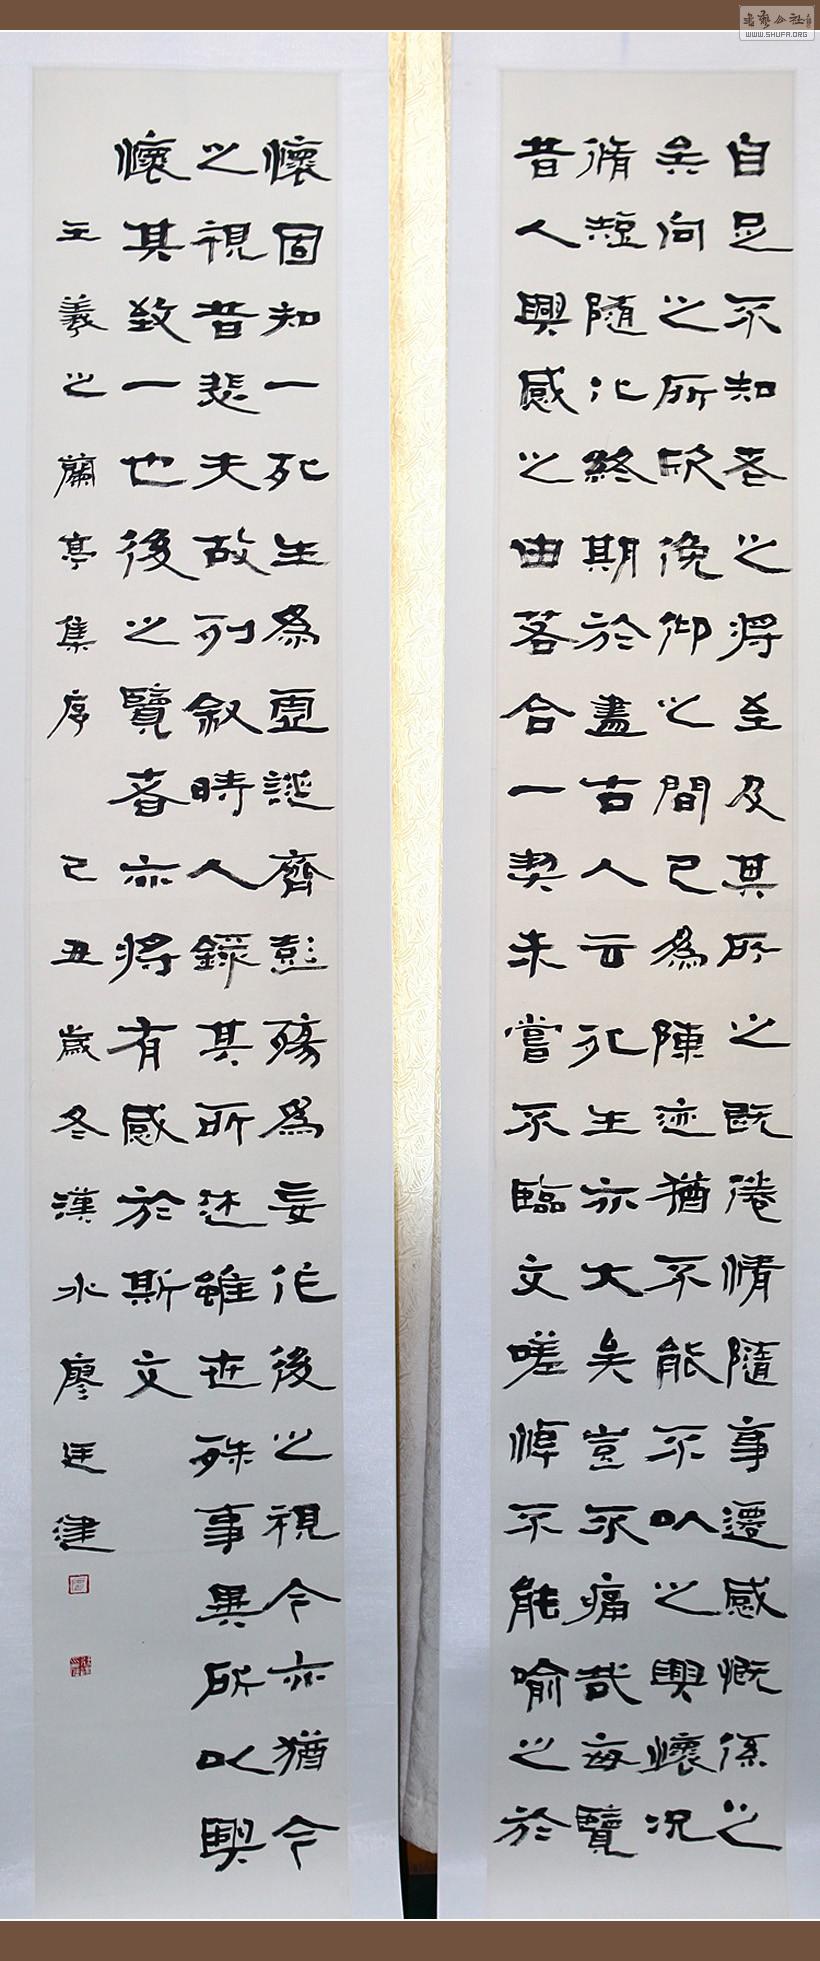 自足不知老之將至及其所之既倦情隨事遷感慨係之
矣向之所欣俛仰之間已為陳迹猶不能不以之興懷況
脩短隨化終期於盡古人云死生亦大矣豈不痛哉每覽
昔人興感之由若合一契未嘗不臨文嗟悼不能喻之於
懷固知一死生為虛誕齊彭殤為妄作後之視今亦猶今
之視昔悲夫故列敘時人錄其所述雖世殊事異所以興
懷其致一也後之覽者亦將有感於斯文
王羲之蘭亭集序 己丑歲冬漢水廖廷建
WWW.SHUFA.ORG